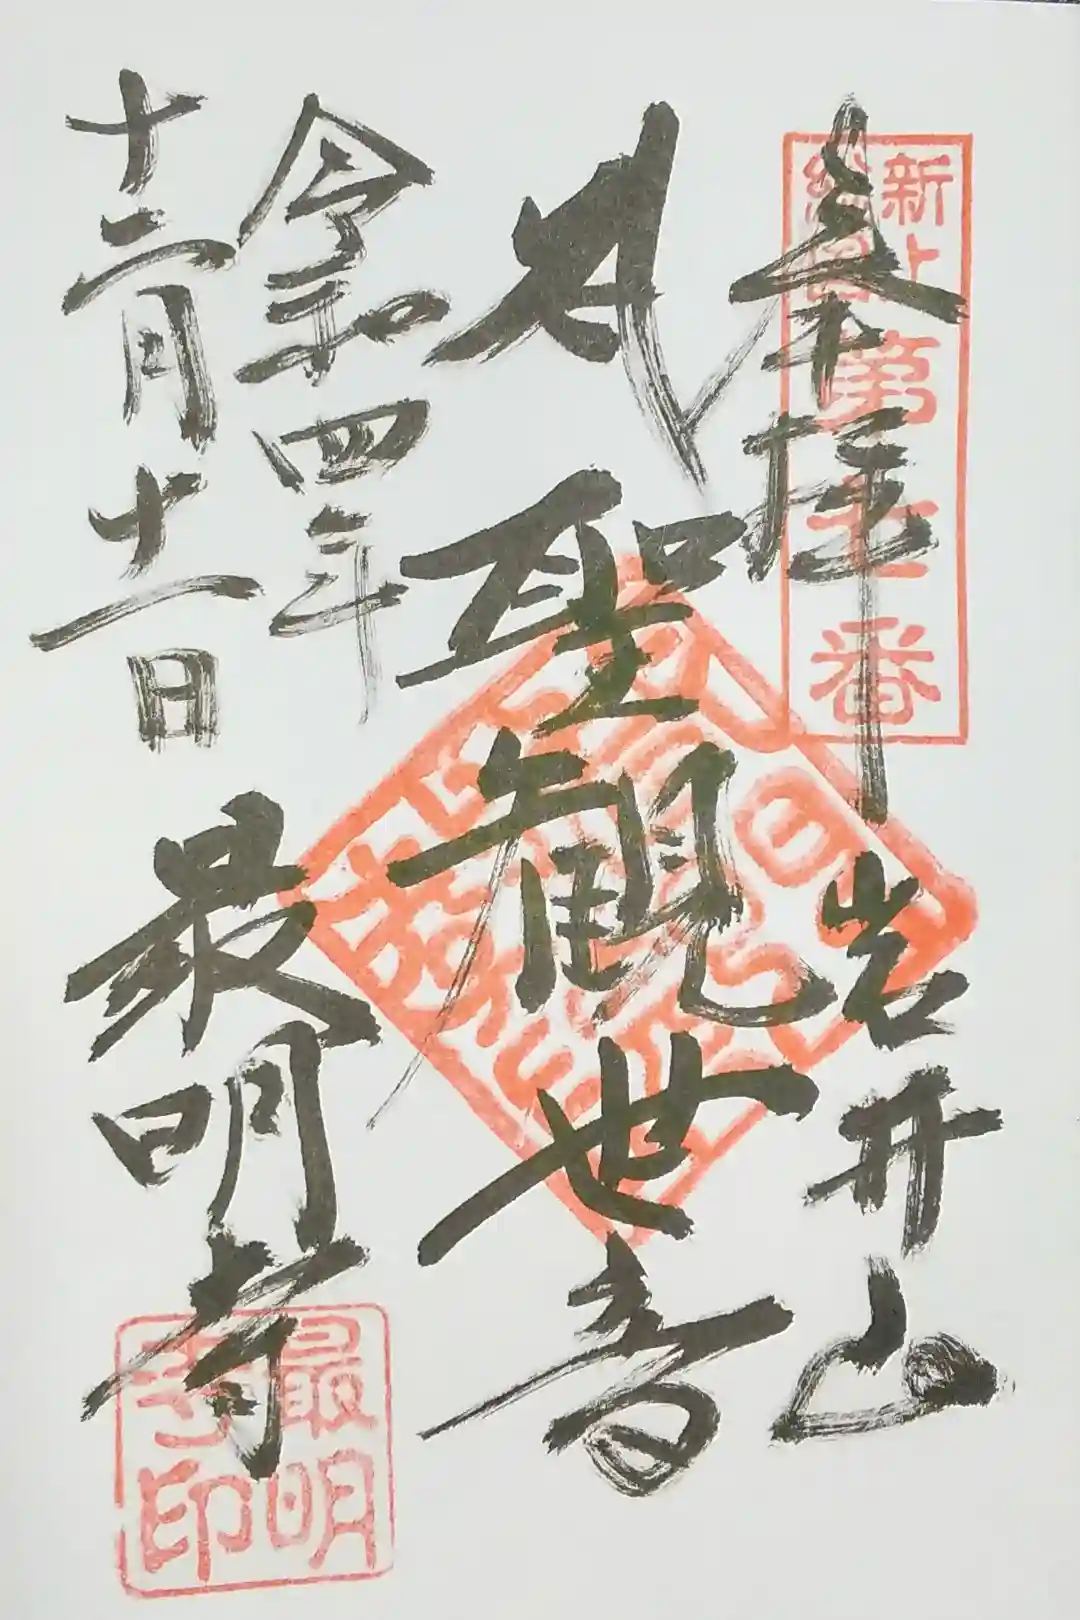 奉拝 岩井山
聖観世音
令和四年
十二月十一日
最明寺
新上総国
第七番
最明寺印